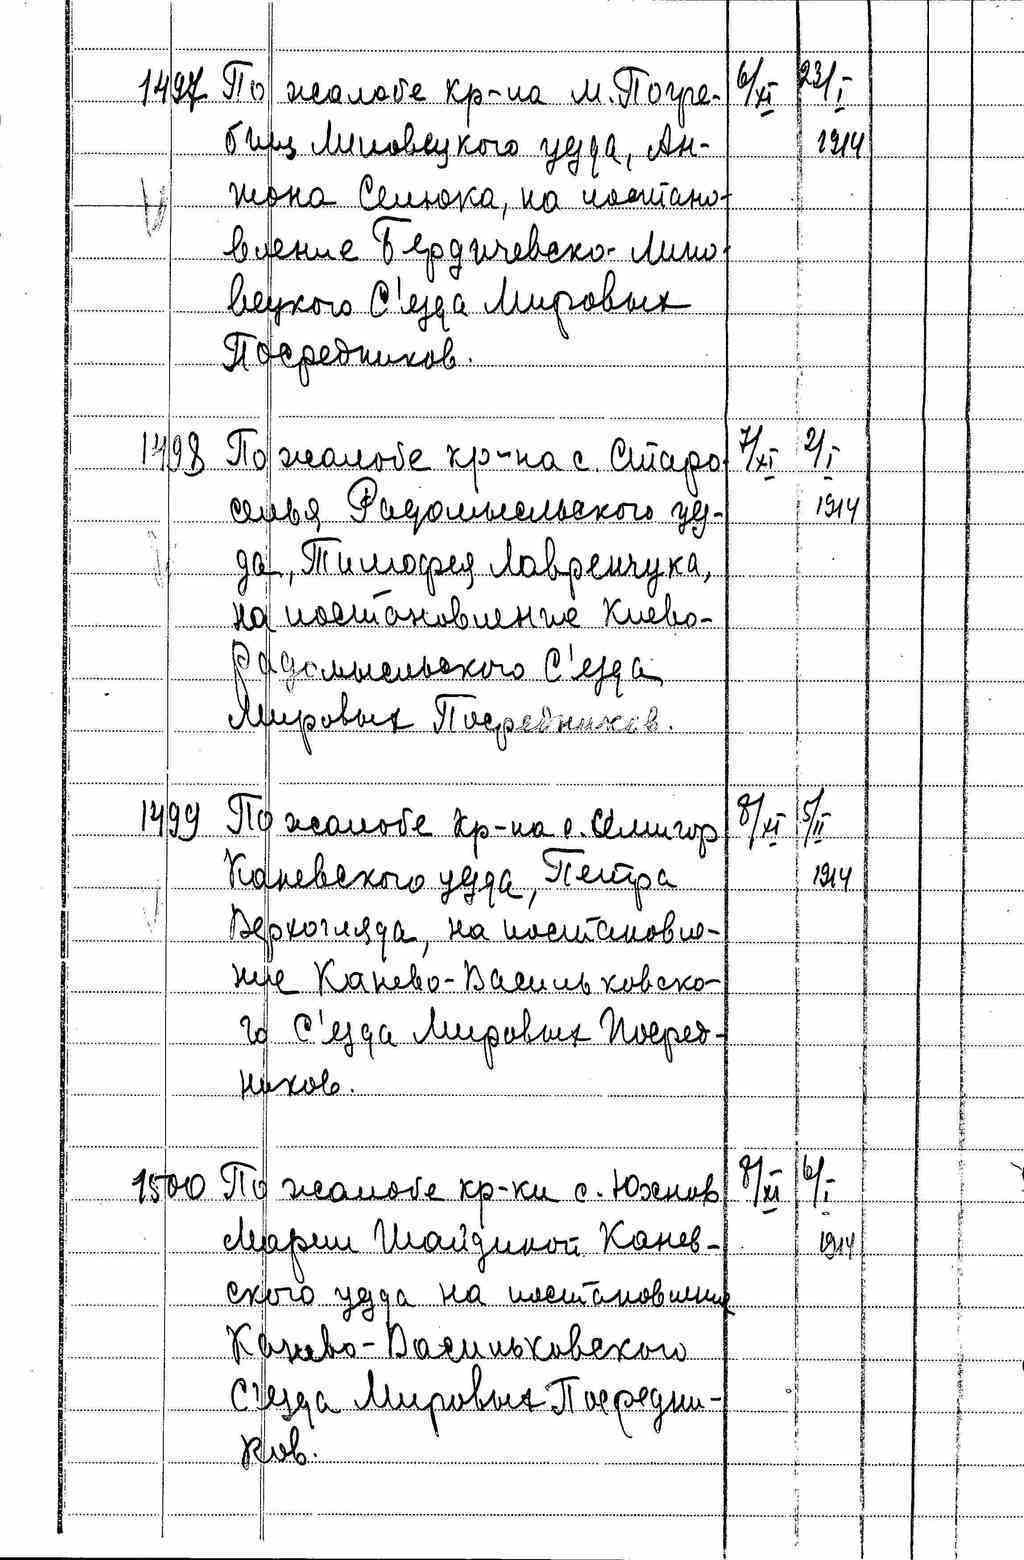 1497 По жалобе кр-на м. Погре- 6/XI 23/I
бищ Липовецкого уезда, Ан- 1914
тона Семюка, на постано-
вление Бердичевско-Липо-
вецкого С'езда Мировых
Посредников.
1498 По жалобе кр-на с. Старо 7/XI 2/I
селья Радомысльского уез- 1914
да, Тимофея Лавренчука,
на постановление Киево-
Радомысльского С'езда
Мировых Посредников.
1499 По жалобе кр-на с. Семигор 8/XI 5/II
Каневского уезда, Петра 1914
Верхогляда, на постановле-
ние Канево-Васильковско-
го С'езда Мировых Посред-
ников.
1500 По жалобе кр-ки с. Юхнов 8/XI 6/I
Марии Шайдиной Канев- 1914
ского уезда на постановление
Канево-Васильковского
С'езда Мировых Посредни-
ков.